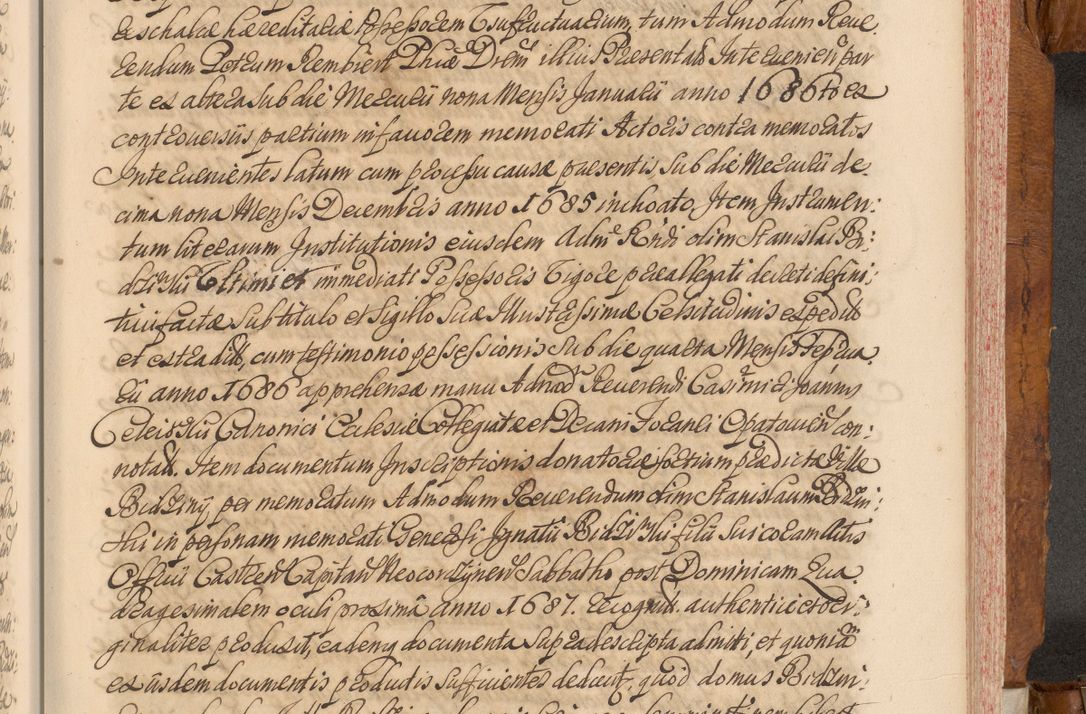 deschalcæ hæreditariæ Possessorem Usufructuarium, tum Admodum Reve,
rendum Petrum Rembiert Phiæ Drem illius Præsentat. Intervenien. par
te ex altera sub die Mercurii nona Mensis Januarii anno 1686to ex
controversiis partium in favorem memorati Actoris contra memoratos
Intervenientes latum cum processu causæ præsentis, sub die Mercurii de,
cima nona Mensis Decembris anno 1685 inchoato. Item Instrumen:
tum literarum Institutionis eiusdem Admo Rndi olim Stanislai Bi:
dzinski Ultimi et immediati Possessoris Vigore præallegati decreti defini:
tivi factæ sub titulo et Sigillo suæ Illustrissimæ Celsitudinis expedit
et extradit, cum testimonio possessionis sub die quarta Mensis Februa,
rii anno 1686 apprehensæ manu Admod Reverendi Casimiri Joannis
Celeiowski Canonici Ecclesiæ Collegiatæ et Decani Foranei Opatovien con:
notat. Item documentum Inscriptionis donatoriæ sortium prædictæ Villæ
Bidziny, per memoratum Admodum Reverendum olim Stanislaum Bidzin:
ski in personam memorati Generosi Ignatii Bidzinski filii sui coram Actis
Officii Castren Capitan Neocorczynen Sabbatho post Dominicam Qua,
dragesimalem oculi proxima anno 1687. Recognit. authentice et ori:
ginaliter produxit, eademq documenta supradescripta admitti, et quoniam
ex iisdem documentis productis sufficienter deducit, quod domus Bidzin: